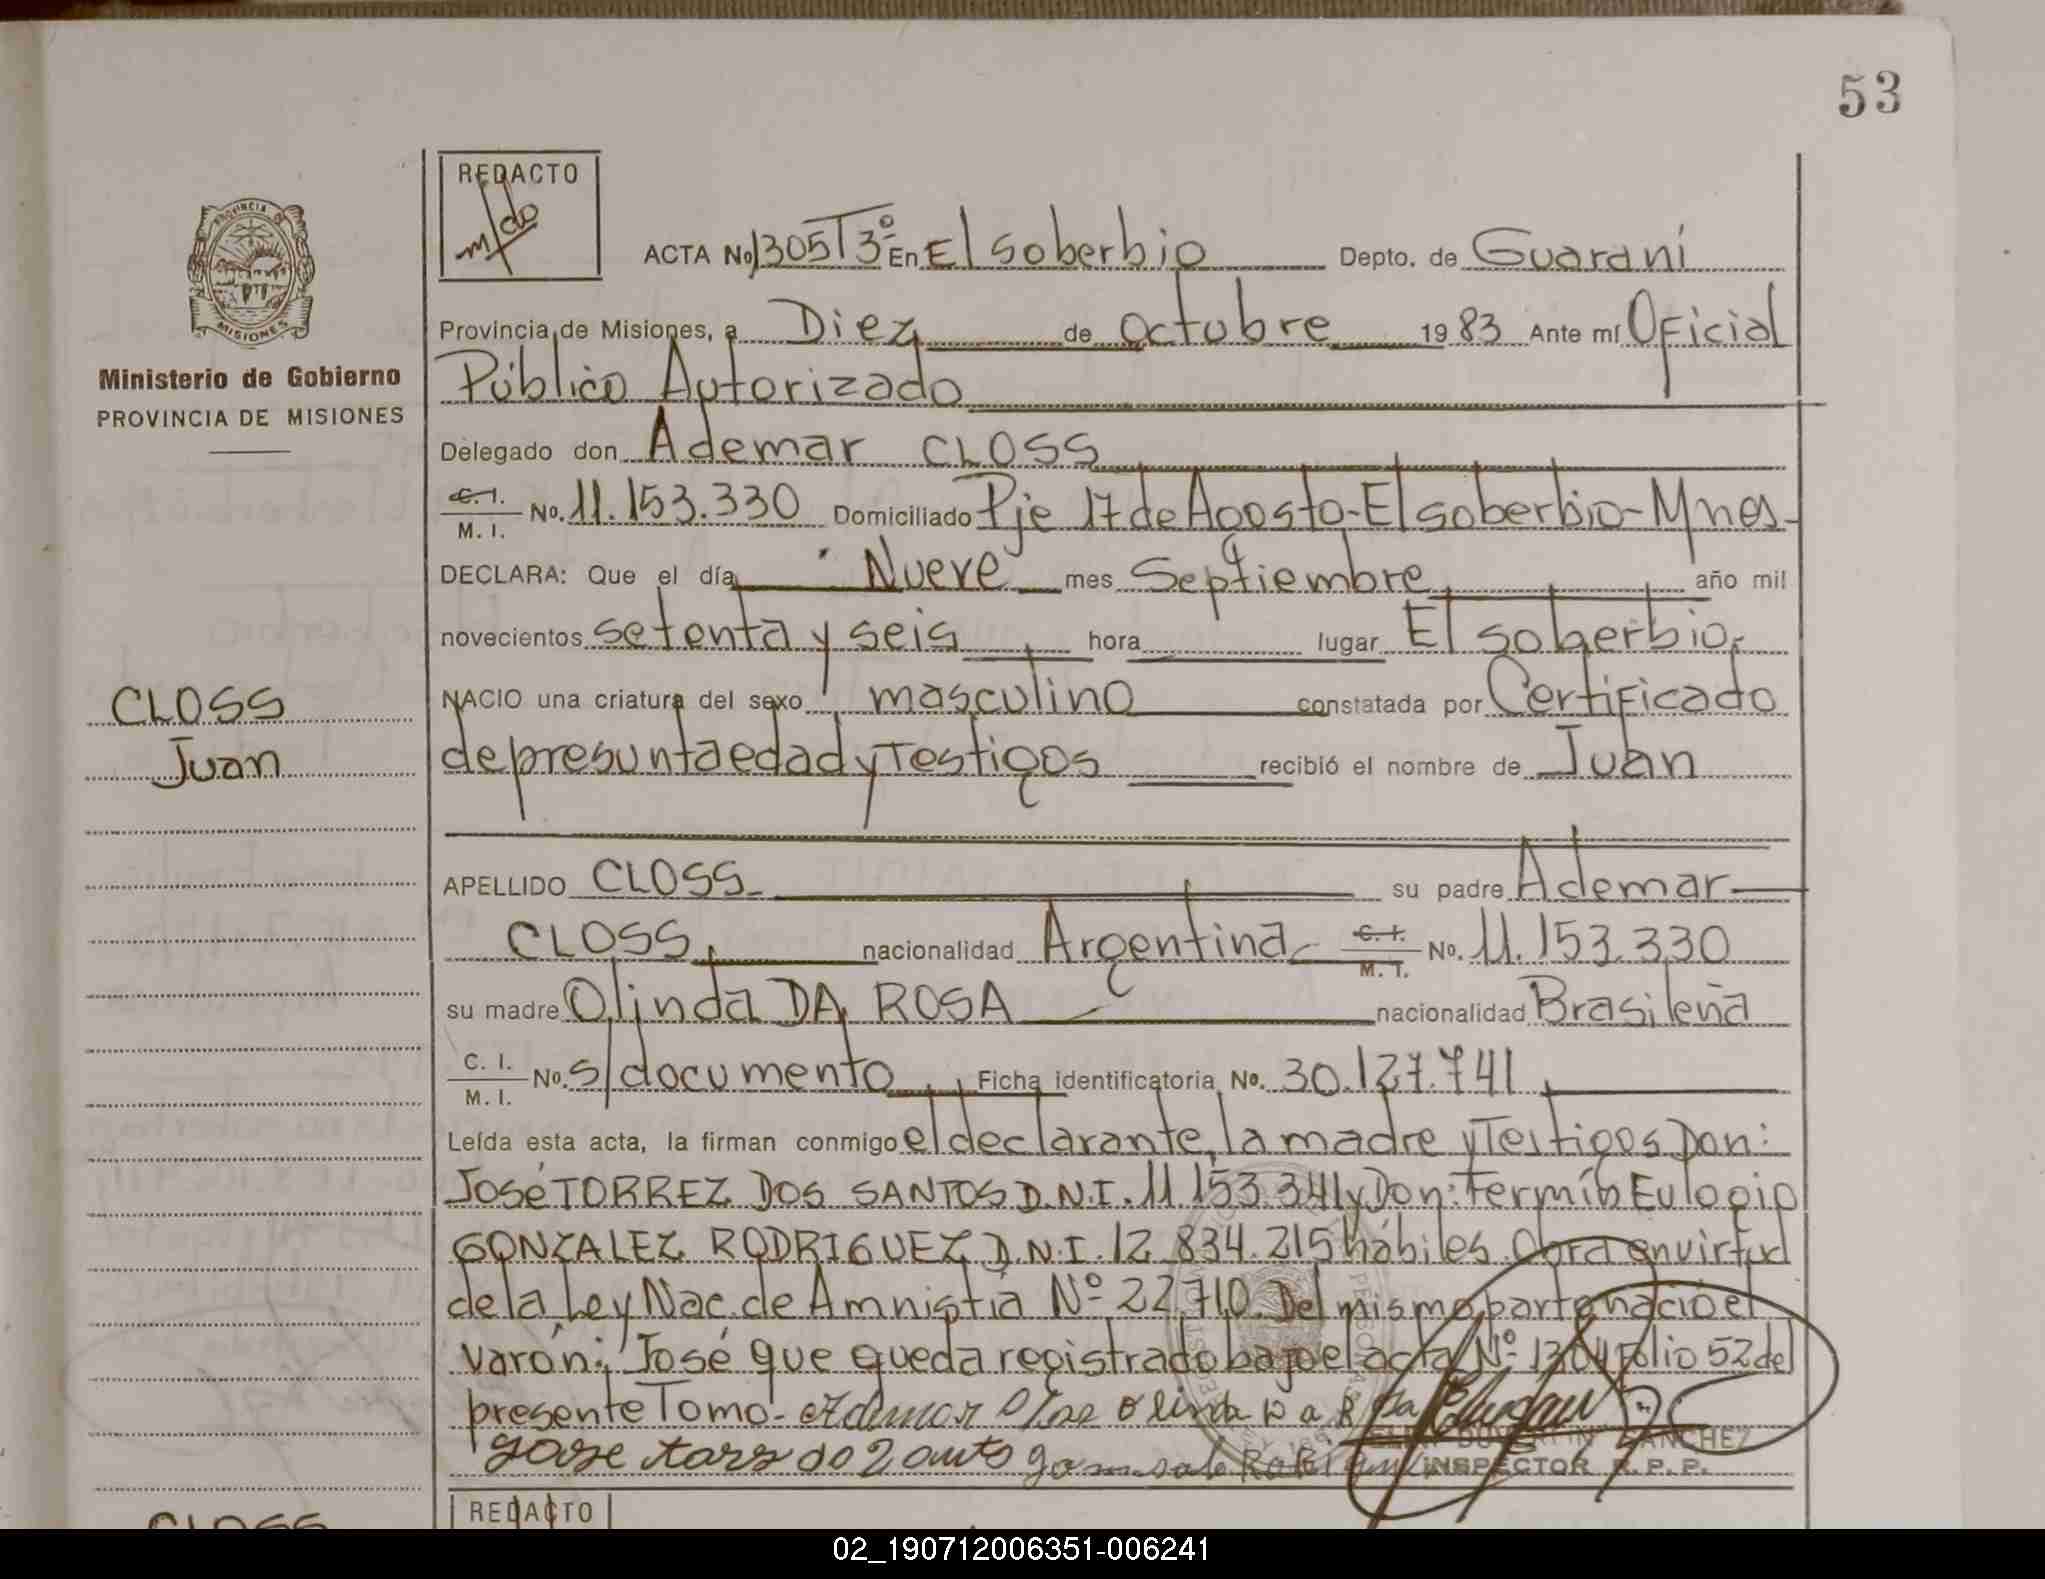 53
REDACTO
m/do
ACTA No 1305 T 3º En El soberbio Depto. de Guaraní
Provincia de Misiones, a Diez de octubre 1983 Ante mí Oficial
Público Autorizado
Ministerio de Gobierno
PROVINCIA DE MISIONES
Delegado don Ademar CLOSS
C. I. / M. I. No. 11.153.330 Domiciliado Pje 17 de Agosto-El soberbio-Mnes-
DECLARA: Que el día Nueve mes Septiembre año mil
novecientos setenta y seis hora lugar El soberbio.
CLOSS
Juan
NACIO una criatura del sexo masculino constatada por Certificado
de presunta edad y Testigos recibió el nombre de Juan
APELLIDO CLOSS su padre Ademar
CLOSS nacionalidad Argentina C. I. / M. I. No. 11.153.330
su madre Olinda DA ROSA nacionalidad Brasileña
C. I. / M. I. No. s/documento Ficha identificatoria No. 30.127.741
Leída esta acta, la firman conmigo el declarante, la madre y Testigos Don:
José TORREZ DOS SANTOS D.N.I. 11.153.341 y Don: Fermín Eulogio
GONZALEZ RODRIGUEZ D.N.I. 12.834.215 hábiles. Obra en virtud
de la Ley Nac. de Amnistia Nº 22.710. Del mismo parto nació el
varón: José que queda registrado bajo el acta Nº 1304 Folio 52 del
presente Tomo-
SANCHEZ
INSPECTOR R. P. P.
REDACTO
CLOSS
02_190712006351-006241